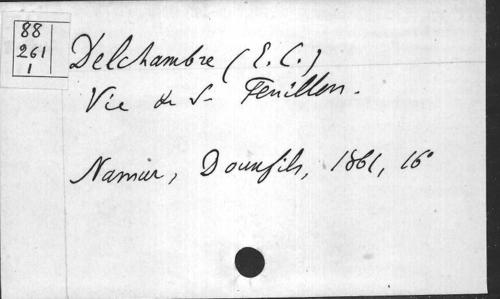 88
261
1
Delchambre (E. C.)
Vie de S- Feuillen.
Namur, Dounfils, 1861, 16°